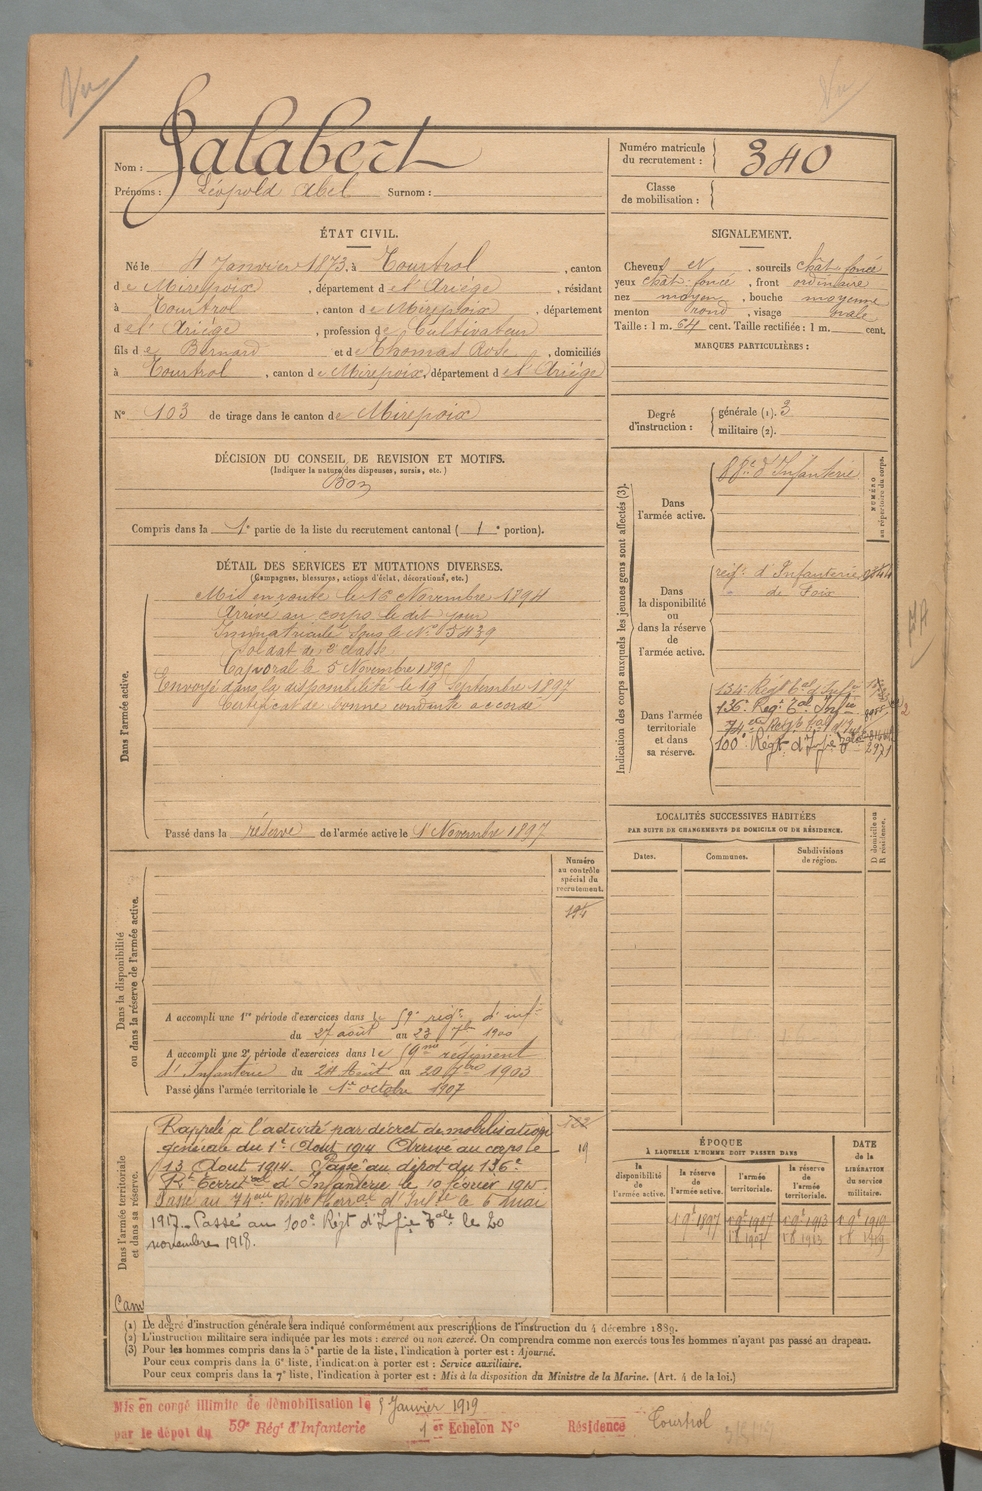 Vu
Nom : Jalabert
Prénoms : Léopold Abel Surnom :
Numéro matricule du recrutement : 340
Classe de mobilisation :
ÉTAT CIVIL.
Né le 4 Janvier 1873, à Tourtrol , canton
de Mirepoix , département de l'Ariége , résidant
à Tourtrol , canton de Mirepoix , département
de l'Ariége , profession de Cultivateur
fils de Bernard et de Thomas Rose , domiciliés
à Tourtrol , canton de Mirepoix, département de l'Ariége
N° 103 de tirage dans le canton de Mirepoix
SIGNALEMENT.
Cheveux et , sourcils chât. foncé
yeux chât. foncé , front ordinaire
nez moyen , bouche moyenne
menton rond , visage ovale
Taille : 1 m. 64 cent. Taille rectifiée : 1 m. cent.
MARQUES PARTICULIÈRES :
Degré d'instruction :
générale (1). 3
militaire (2).
DÉCISION DU CONSEIL DE REVISION ET MOTIFS.
(Indiquer la nature des dispenses, sursis, etc.)
Bon
Compris dans la 1e partie de la liste du recrutement cantonal ( 1 e portion).
DÉTAIL DES SERVICES ET MUTATIONS DIVERSES.
(Campagnes, blessures, actions d'éclat, décorations, etc.)
Dans l'armée active.
Mis en route le 16 Novembre 1894
Arrivé au corps le dit jour
Immatriculé sous le N° 5439
Soldat de 2e classe
Caporal le 5 Novembre 1895
Envoyé dans la disponibilité le 19 Septembre 1897
Certificat de bonne conduite accordé
Passé dans la réserve de l'armée active le 1er Novembre 1897
Indication des corps auxquels les jeunes gens sont affectés (3).
NUMÉRO au répertoire du corps.
Dans l'armée active.
88e d'Infanterie
Dans la disponibilité ou dans la réserve de l'armée active.
régt. d'Infanterie
de Foix
Dans l'armée territoriale et dans sa réserve.
134e Régt Tal d'Infie
136e Regt Tal Infie
74e Régt Tal d'Inf
100e Régt d'Infie Tale 2971
LOCALITÉS SUCCESSIVES HABITÉES
PAR SUITE DE CHANGEMENTS DE DOMICILE OU DE RÉSIDENCE.
Dates. Communes. Subdivisions de région. D domicile ou R résidence.
Dans la disponibilité ou dans la réserve de l'armée active.
Numéro au contrôle spécial du recrutement.
A accompli une 1re période d'exercices dans le 59e régt d'inf
du 27 août au 23 7bre 1900
A accompli une 2e période d'exercices dans le 59me régiment
d'Infanterie du 24 Août au 20 7bre 1903
Passé dans l'armée territoriale le 1er octobre 1907
Dans l'armée territoriale et dans sa réserve.
Rappelé à l'activité par décret de mobilisation
générale du 1er Aout 1914 Arrivé au corps le
13 Aout 1914. Passé au dépot du 136e
Rt Territal d'Infanterie le 10 février 1915.
Passé au 74me Rt Terral d'Infie le 6 Mai
1917. Passé au 100e Régt d'Infie Tale le 20
novembre 1918.
Cam
19
ÉPOQUE
A LAQUELLE L'HOMME DOIT PASSER DANS
la disponibilité de l'armée active. la réserve de l'armée active. l'armée territoriale. la réserve de l'armée territoriale.
DATE de la LIBÉRATION DU SERVICE militaire.
1 9e 1897 1 9e 1907 1 9e 1913 1 9e 1919
1 8 1907 1 8 1913 1 8 1919
(1) Le degré d'instruction générale sera indiqué conformément aux prescriptions de l'instruction du 4 décembre 1889.
(2) L'instruction militaire sera indiquée par les mots : exercé ou non exercé. On comprendra comme non exercés tous les hommes n'ayant pas passé au drapeau.
(3) Pour les hommes compris dans la 5e partie de la liste, l'indication à porter est : Ajourné.
Pour ceux compris dans la 6e liste, l'indication à porter est : Service auxiliaire.
Pour ceux compris dans la 7e liste, l'indication à porter est : Mis à la disposition du Ministre de la Marine. (Art. 4 de la loi.)
Mis en congé illimité de démobilisation le 5 Janvier 1919
par le dépot du 59e Régt d'Infanterie 1er Echelon N° Résidence Tourtrol